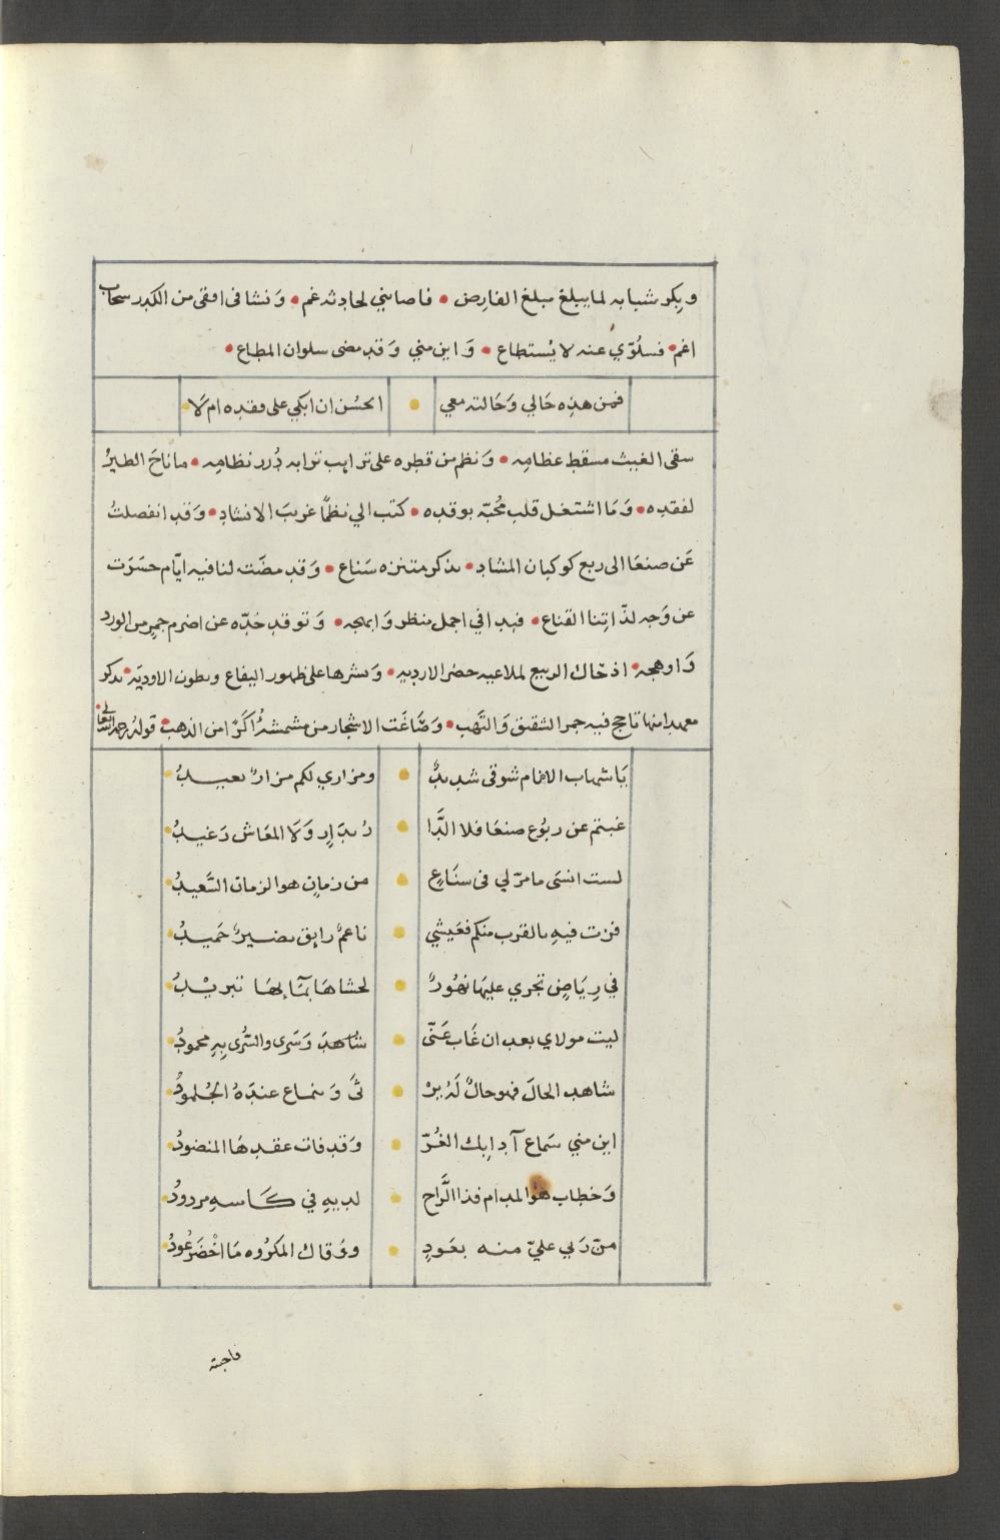 وبكر شبابه لما يبلغ مبلغ الفارض • فاصابني لحادثه غم • وَنشا في افقي من الكدر سحاب
اغم • فسلُوّي عنه لا يُستطاع • وَاين مني وَقد مضى سلوان المطاع •
فمن هذه حَالي وَحَالته معي • الحسُن ان ابكي على فقده ام لَا
سقى الغيث مسقط عظامه • وَنظم من قطره على ترايب ترابه دُرر نظامه • ما ناحَ الطيرُ
لفقده • وَمَا اشتغل قلب مُحبّه بوقده • كتب الي نظمًا غريبَ الانشاد • وَقد انفصلتُ
عَن صنعَا الى ربع كوكبان المشاد • يذكر متنزه سَناع • وَقد مضَت لنا فيه ايّام حسَرَت
عن وَجه لذّاتِنا القناع • فبدا في اجمل منظر وَابهجه • وَتوقد خدّه عن اضرم جمر من الورد
وَاوهجه • اذ حاك الربيع لملاعبه خضر الارديه • وَنشرها على ظهور اليفاع وبطون الاوديَه • يذكر
معهدا منها تاجج فيه جمر الشقيق وَالتَهب • وَصَّاغَت الاشجار من مشمشه اُكَرًا من الذهب • قولهُ رحمه الله تعالى
يَا شهاب الانام شوقي شديدٌ • ومزاري لكم مزارٌ بعيدُ
غبتم عن ربُوع صنعَا فلا الدَّا • رُ بدَارٍ وَلَا المعَاش رَغيدُ
لست انسَى ما مرّ لي في سنَاعٍ • من زمانٍ هو الزمان السَّعيدُ
فزت فيهِ بالقرب منكم فعَيشي • ناعمٌ رايق نضيرٌ حَميدُ
في رِيَاضٍ تجري عليهَا نهُورٌ • لحشاهَا بمَآئِهَا تبريْدُ
ليت مولاي بعد ان غَابَ عَنّي • شاهدَ وَسَرى والسُّرى بهِ محمودُ
شاهد الحالَ فهو حالٌ لَهُ يرْ • ثَى وَينمَاع عندَهُ الجُلمودُ
اين مني سَماع آدابِك الغُرّ • وَقد فات عقدهَا المنضودُ
وَخطاب هو المدام فذا الرَّاح • لديهِ في كَاسهِ مردودُ
منّ رَبي عليّ منه بعَودٍ • ووَقاك المكرُوه مَا اخْضَرّ عُودُ